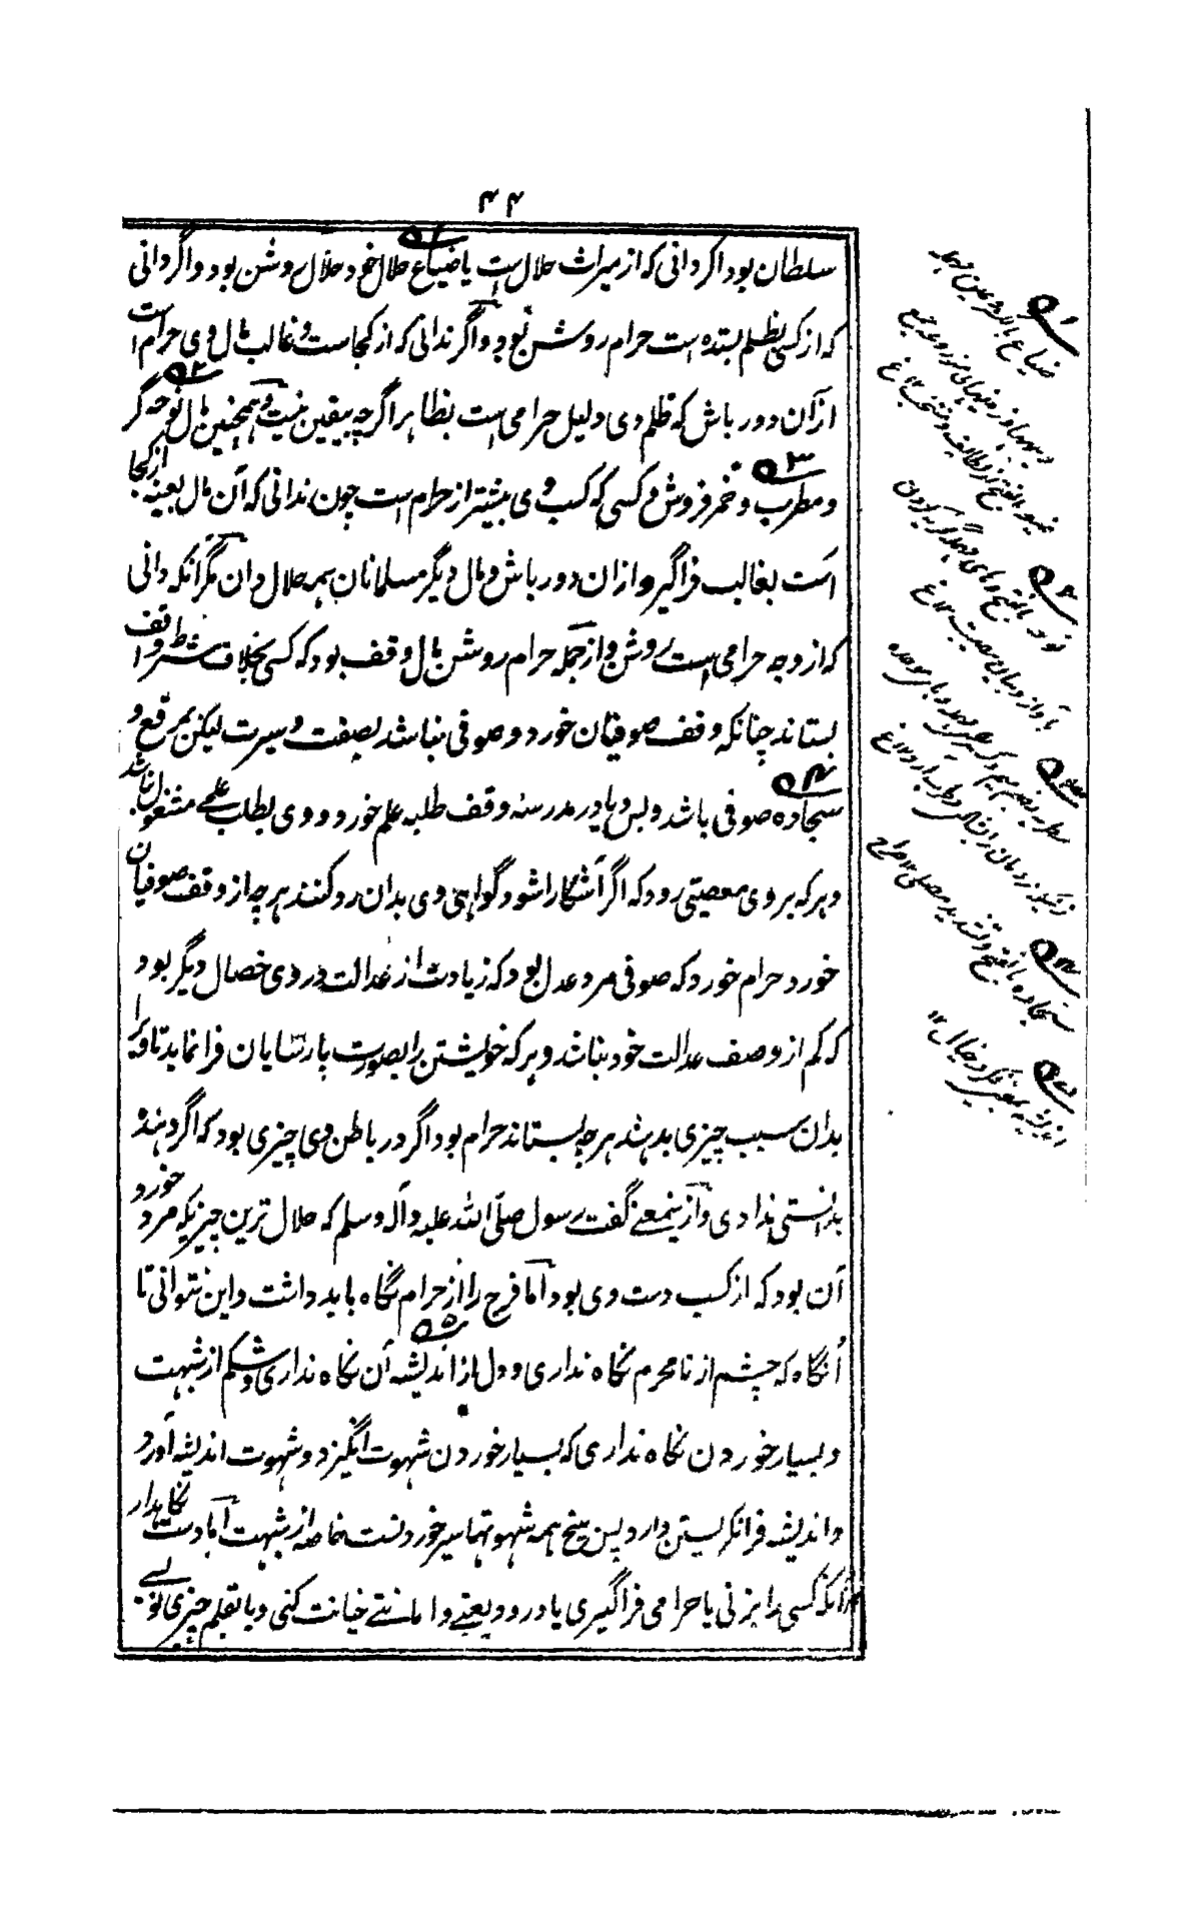 ۴۴
سلطان بود اگر دانی که از میراث حلال است یا ضیاع حلال خود حلال روشن بود و اگر دانی
که از کسی بظلم بستده است حرام روشن بود و اگر ندانی که از کجاست و غالب مال وی حرام است
ازان دور باش که ظلم وی دلیل حرامی است بظاهر اگرچه بیقین نیست و همچنین مال نوحه گر
و مطرب و خمر فروش و کسی که کسب وی بیشتر از حرام است چون ندانی که آن مال بعینه از کجا
است بغالب فراگیر و ازان دور باش و مال دیگر مسلمانان همه حلال دان مگر آنکه دانی
که از وجه حرامی است روشن و از جمله حرام روشن مال وقف بود که کسی بخلاف شرط واقف
بستاند چنانکه وقف صوفیان خورد و صوفی نباشد بصفت و سیرت لیکن بمرقع و
سجاده صوفی باشد و بس و یا در مدرسه وقف طلبه علم خورد و وی بطلب علمے مشغول نباشد
و هرکه بر وی معصیتی رود که اگر آشکارا شود گواهی وی بدان رد کنند هرچه از وقف صوفیان
خورد حرام خورد که صوفی مرد عدل بود که زیادت از عدالت در وی خصال دیگر بود
که کم از وصف عدالت خود نباشد و هرکه خویشتن را بصورت پارسایان فرا نماید تا ویرا
بدان سبب چیزی بدهند هرچه بستاند حرام بود اگر در باطن وی چیزی بود که اگر دهنده
بدانستی ندادی و ازینمعنے گفت رسول صلی الله علیه وآله وسلم که حلال ترین چیزیکه مرد خورد
آن بود که از کسب دست وی بود اما فرج را از حرام نگاه باید داشت و این نتوانی تا
آنگاه که چشم از نامحرم نگاه نداری و دل از اندیشه آن نگاه نداری و شکم از شبهت
و بسیار خوردن نگاه نداری که بسیار خوردن شهوت انگیزد و شهوت اندیشه آورد
و اندیشه فرا نگریستن دارد پس بیخ همه شهوتها سیر خوردنست خاصه از شبهت اما دست نگاهدار
از آنکه کسی را بزنی یا حرامی فراگیری یا در ودیعتے و امانتے خیانت کنی و یا بقلم چیزی نویسے
۱
ضیاع بالکسر و عین مهمله
۲
نوحه بالفتح
بآواز
۳
۴
سجاده بالفتح و تشدید
۵
اندیشه بمعنی فکر و خیال ۱۲